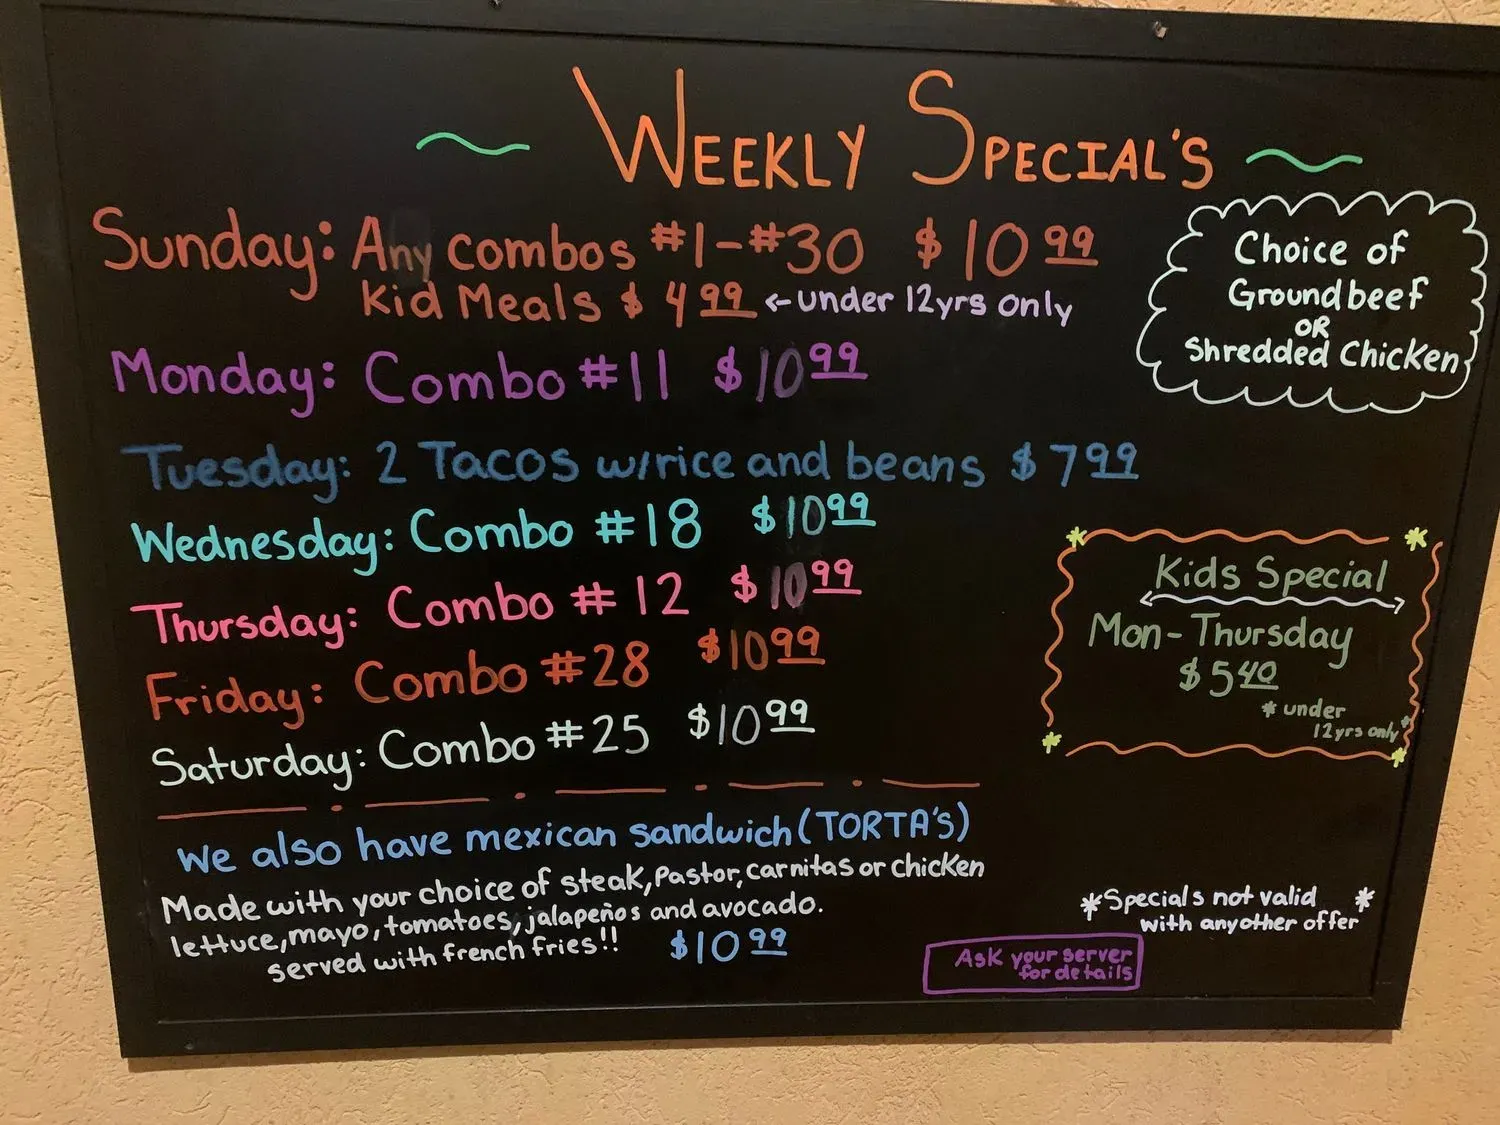 ~ WEEKLY SPECIAL'S ~
Sunday: Any combos #1-#30 $10 99
Kid Meals $ 4 99 ← under 12yrs only
Choice of
Ground beef
OR
Shredded Chicken
Monday: Combo #11 $10 99
Tuesday: 2 Tacos w/rice and beans $7 99
Wednesday: Combo #18 $10 99
Thursday: Combo #12 $10 99
Friday: Combo #28 $10 99
Saturday: Combo #25 $10 99
Kids Special
Mon-Thursday
$5 40
* under
12yrs only*
We also have mexican sandwich (TORTA'S)
Made with your choice of steak, Pastor, carnitas or chicken
lettuce, mayo, tomatoes, jalapeños and avocado.
served with french fries!! $10 99
*Specials not valid *
with anyother offer
Ask your server
for details